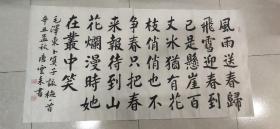 風雨送春歸
飛雪迎春到
已是懸崖百
丈冰猶有花
枝俏俏也不
争春只把春
来報待到山
花爛漫時她
在叢中笑
毛澤東卜算子詠梅一首
辛丑孟秋唐雲来書